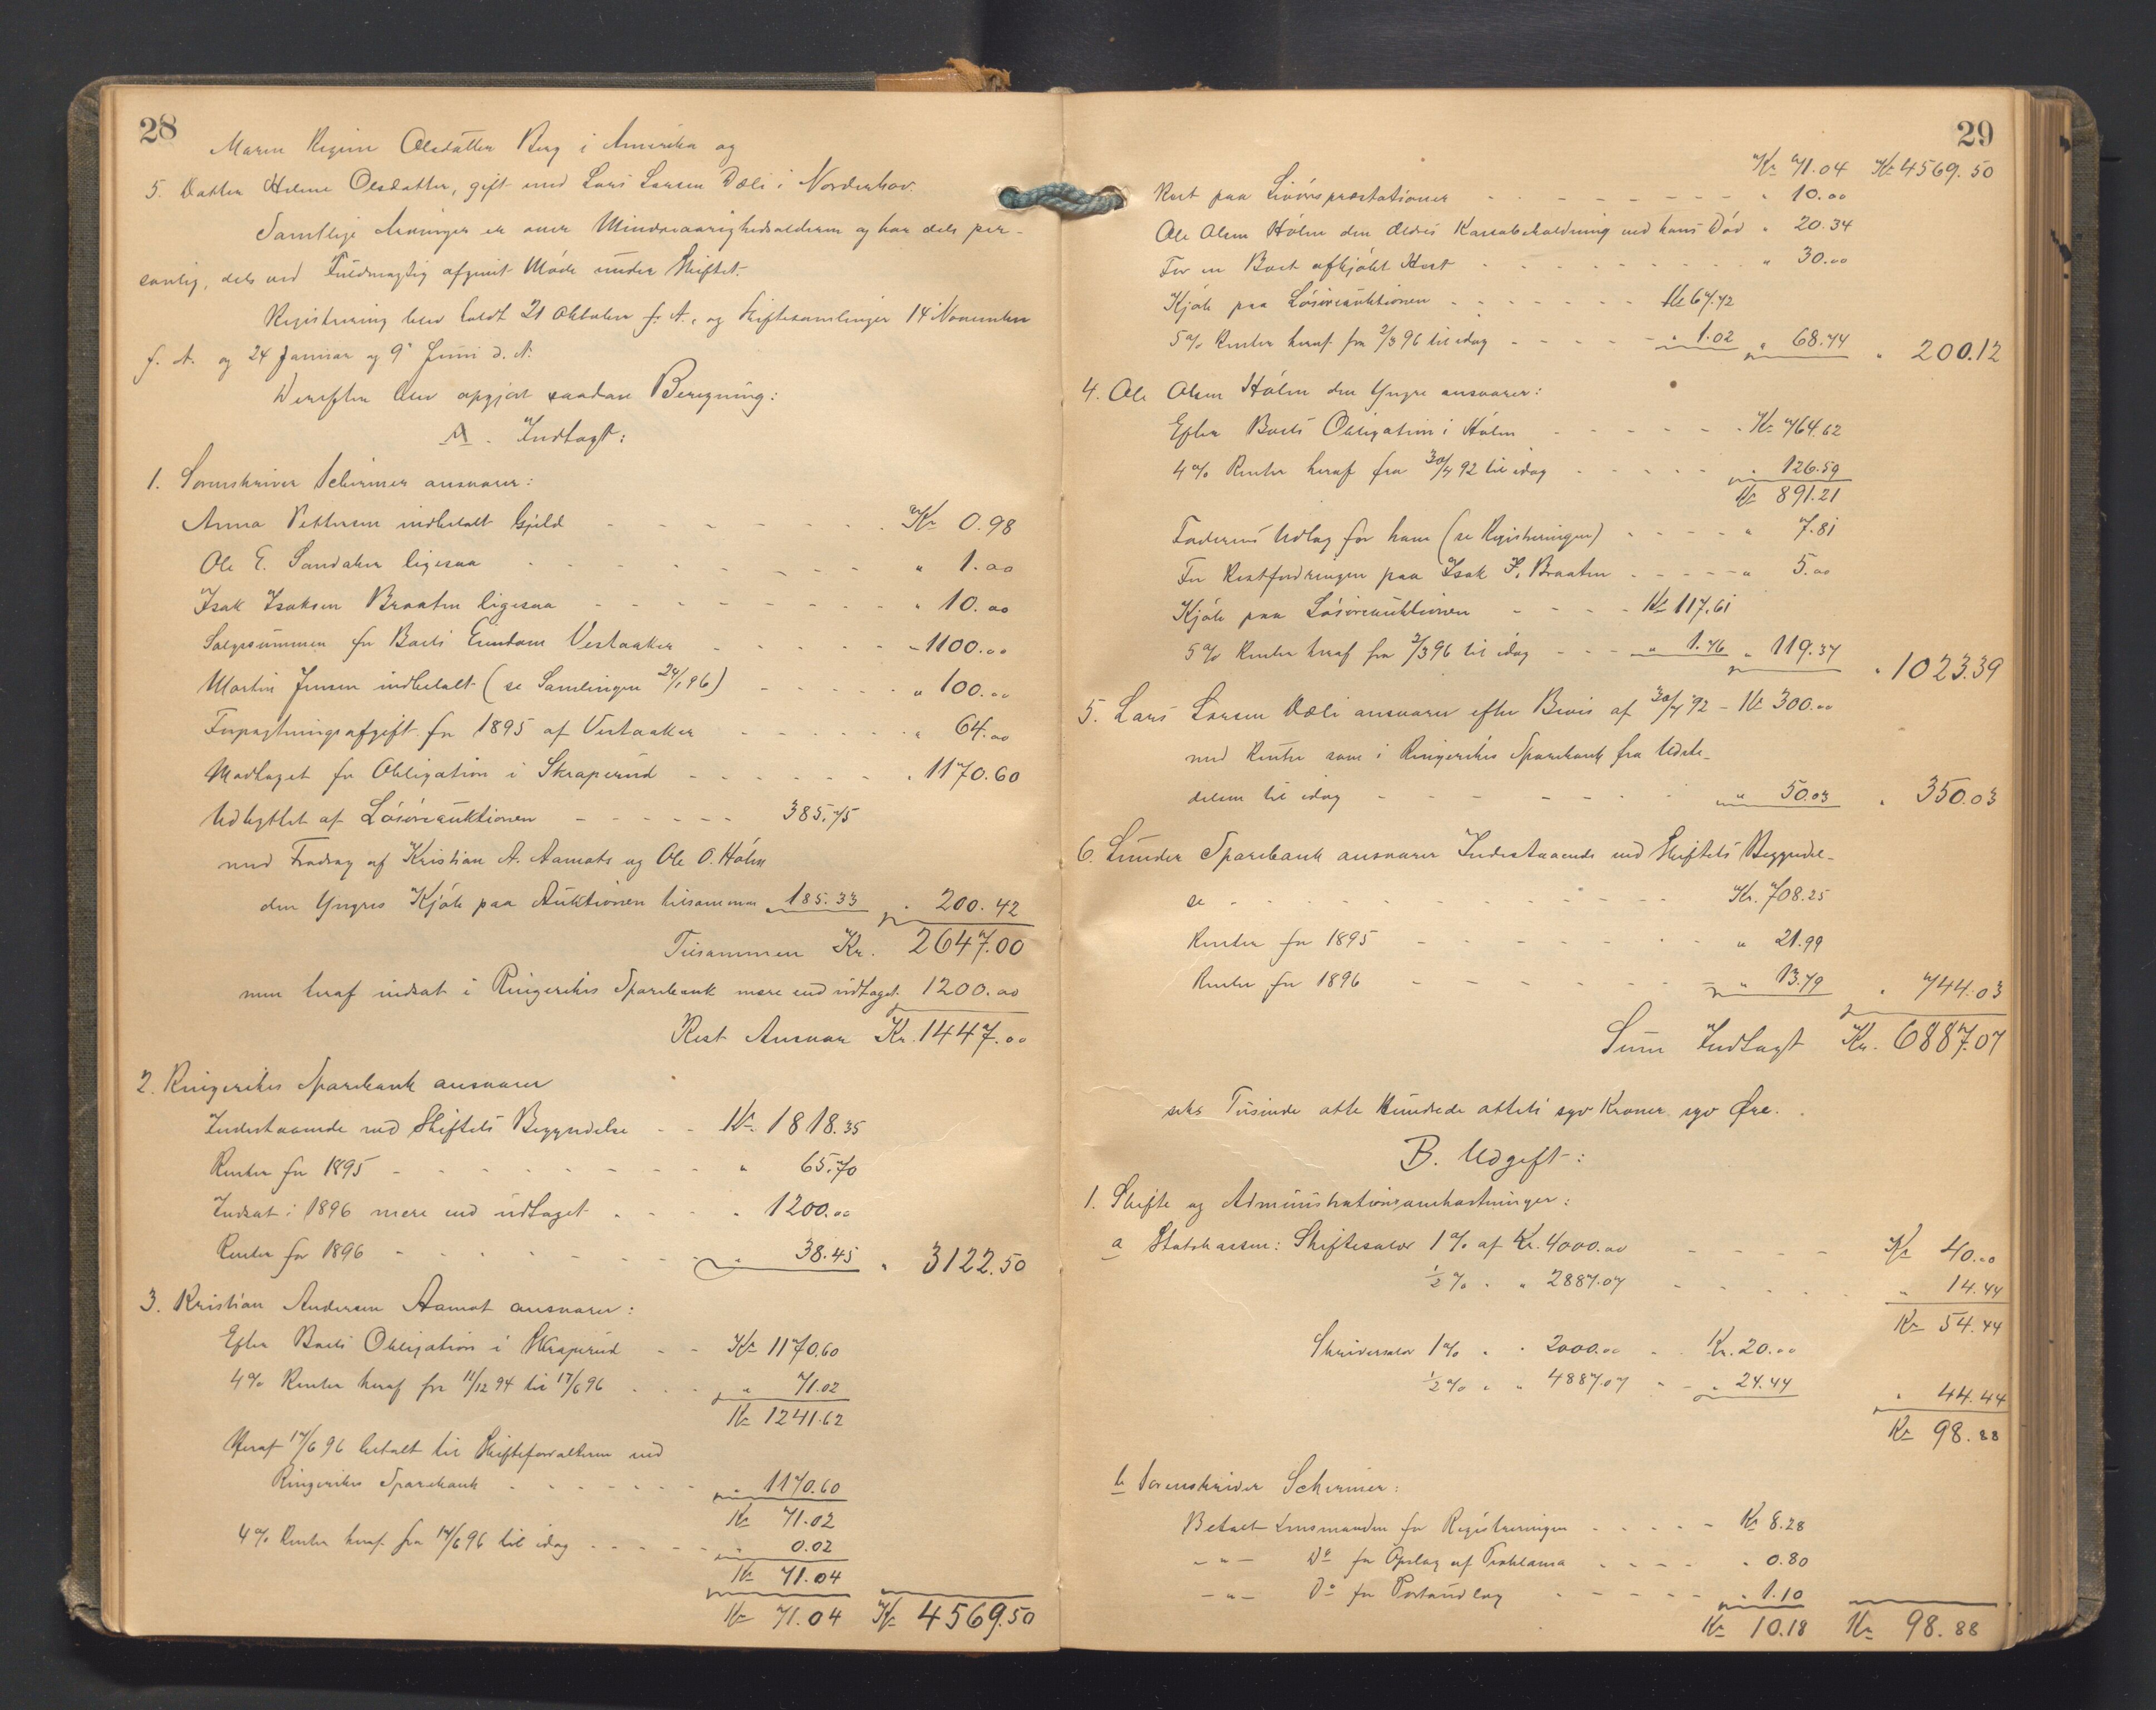 28
Maren Regine Olsdatter Berg i Amerika og
5. Datter Helene Olsdatter, gift med Lars Larsen Dæli i Norderhov.
Samtlige Arvinger er over Mindreaarighedsalderen og har dels per-
sonlig, dels ved Fuldmægtig afgivet Møde under Skiftet.
Registrering blev holdt 21 Oktober f. A., og Skiftesamlinger 14 November
f. A. og 24 Januar og 9 Juni d. A.
Derefter blev opgjort saadan Beregning:
A. Indtægt:
1. Sorenskriver Schirmer ansvarer:
Anna Pettersen indbetalt Gjeld - - - Kr 0.98
Ole E. Sandaker ligesaa - - - " 1.00
Isak Isaksen Braaten ligesaa - - - " 10.00
Salgssummen for Boets Eiendom Vestaaker - - - 1100.00
Martin Jensen indbetalt (se Samlingen 24/1 96) - - - " 100.00
Forpagtningsafgift for 1895 af Vestaaker - - - " 64.00
Modtaget for Obligation i Skraperud - - - " 1170.60
Udbyttet af Løsøreauktionen - - - 385.75
med Fradrag af Kristian A. Aamots og Ole O. Hólm
den Yngres Kjøb paa Auktionen tilsammen 185.33 " 200.42
Tilsammen Kr. 2647.00
men heraf indsat i Ringerikes Sparebank mere end udtaget 1200.00
Rest Ansvar Kr. 1447.00
2. Ringerikes Sparebank ansvarer
Indestaaende ved Skiftets Begyndelse - - Kr. 1818.35
Renter for 1895 - - - " 65.70
Indsat i 1896 mere end udtaget - - - " 1200.00
Renter for 1896 - - - " 38.45 " 3122.50
3. Kristian Andersen Aamot ansvarer:
Efter Boets Obligation i Skraperud - - Kr 1170.60
4% Renter heraf fra 11/12 94 til 17/6 96 - - - " 71.02
Kr 1241.62
Heraf 17/6 96 betalt til Skifteforvalteren ved
Ringerikes Sparebank - - - " 1170.60
Kr 71.02
4% Renter heraf fra 17/6 96 til idag - - - " 0.02
Kr 71.04
Kr 71.04 Kr 4569.50
29
Kr 71.04 Kr 4569.50
Rest paa Livørepræstationer - - - " 10.00
Ole Olsen Hólm den Ældres Kassabeholdning ved hans Død " 20.34
For en Boet afkjøbt Hest - - - " 30.00
Kjøb paa Løsøreauktionen - - - Kr 67.72
5% Renter heraf fra 2/3 96 til idag - - - " 1.02 " 68.74 " 200.12
4. Ole Olsen Hólm den Yngre ansvarer:
Efter Boets Obligation i Hólm - - - Kr 764.62
4% Renter heraf fra 30/4 92 til idag - - - " 126.59
Kr 891.21
Faderens Udlæg for ham (se Registreringen) - - - " 7.81
For Restfordringen paa Isak I. Braaten - - - " 5.00
Kjøb paa Løsøreauktionen - - - Kr 117.61
5% Renter heraf fra 2/3 96 til idag - - - " 1.76 " 119.37
" 1023.39
5. Lars Larsen Dæli ansvarer efter Bevis af 30/4 92 - Kr 300.00
med Renter som i Ringerikes Sparebank fra Udste-
delsen til idag - - - " 50.03 " 350.03
6. Lunder Sparebank ansvarer Indestaaende ved Skiftets Begyndel-
se - - - Kr. 708.25
Renter for 1895 - - - " 21.99
Renter for 1896 - - - " 13.79 " 744.03
Sum Indtægt Kr. 6887.07
seks Tusinde otte Hundrede otteti syv Kroner syv Øre.
B. Udgift:
1. Skifte og Administrationsomkostninger:
a Statskassen: Skiftesalær 1% af Kr. 4000.00 - - - Kr 40.00
1/2% " " 2887.07 - - - " 14.44
Kr 54.44
Skriversalær 1% " " 2000.00 - - Kr. 20.00
1/2% " " 4887.07 " - " 24.44
" 44.44
Kr 98.88
b Sorenskriver Schirmer:
Betalt Lensmanden for Registreringen - - - Kr 8.28
- " - Do for Opslag af Proklama - - - " 0.80
- " - Do for Portoudlæg - - - " 1.10
Kr 10.18 Kr 98.88